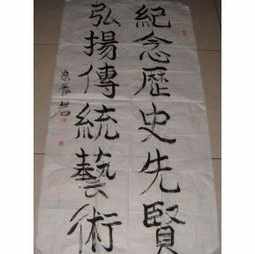 紀念歷史先賢
弘揚傳統藝術